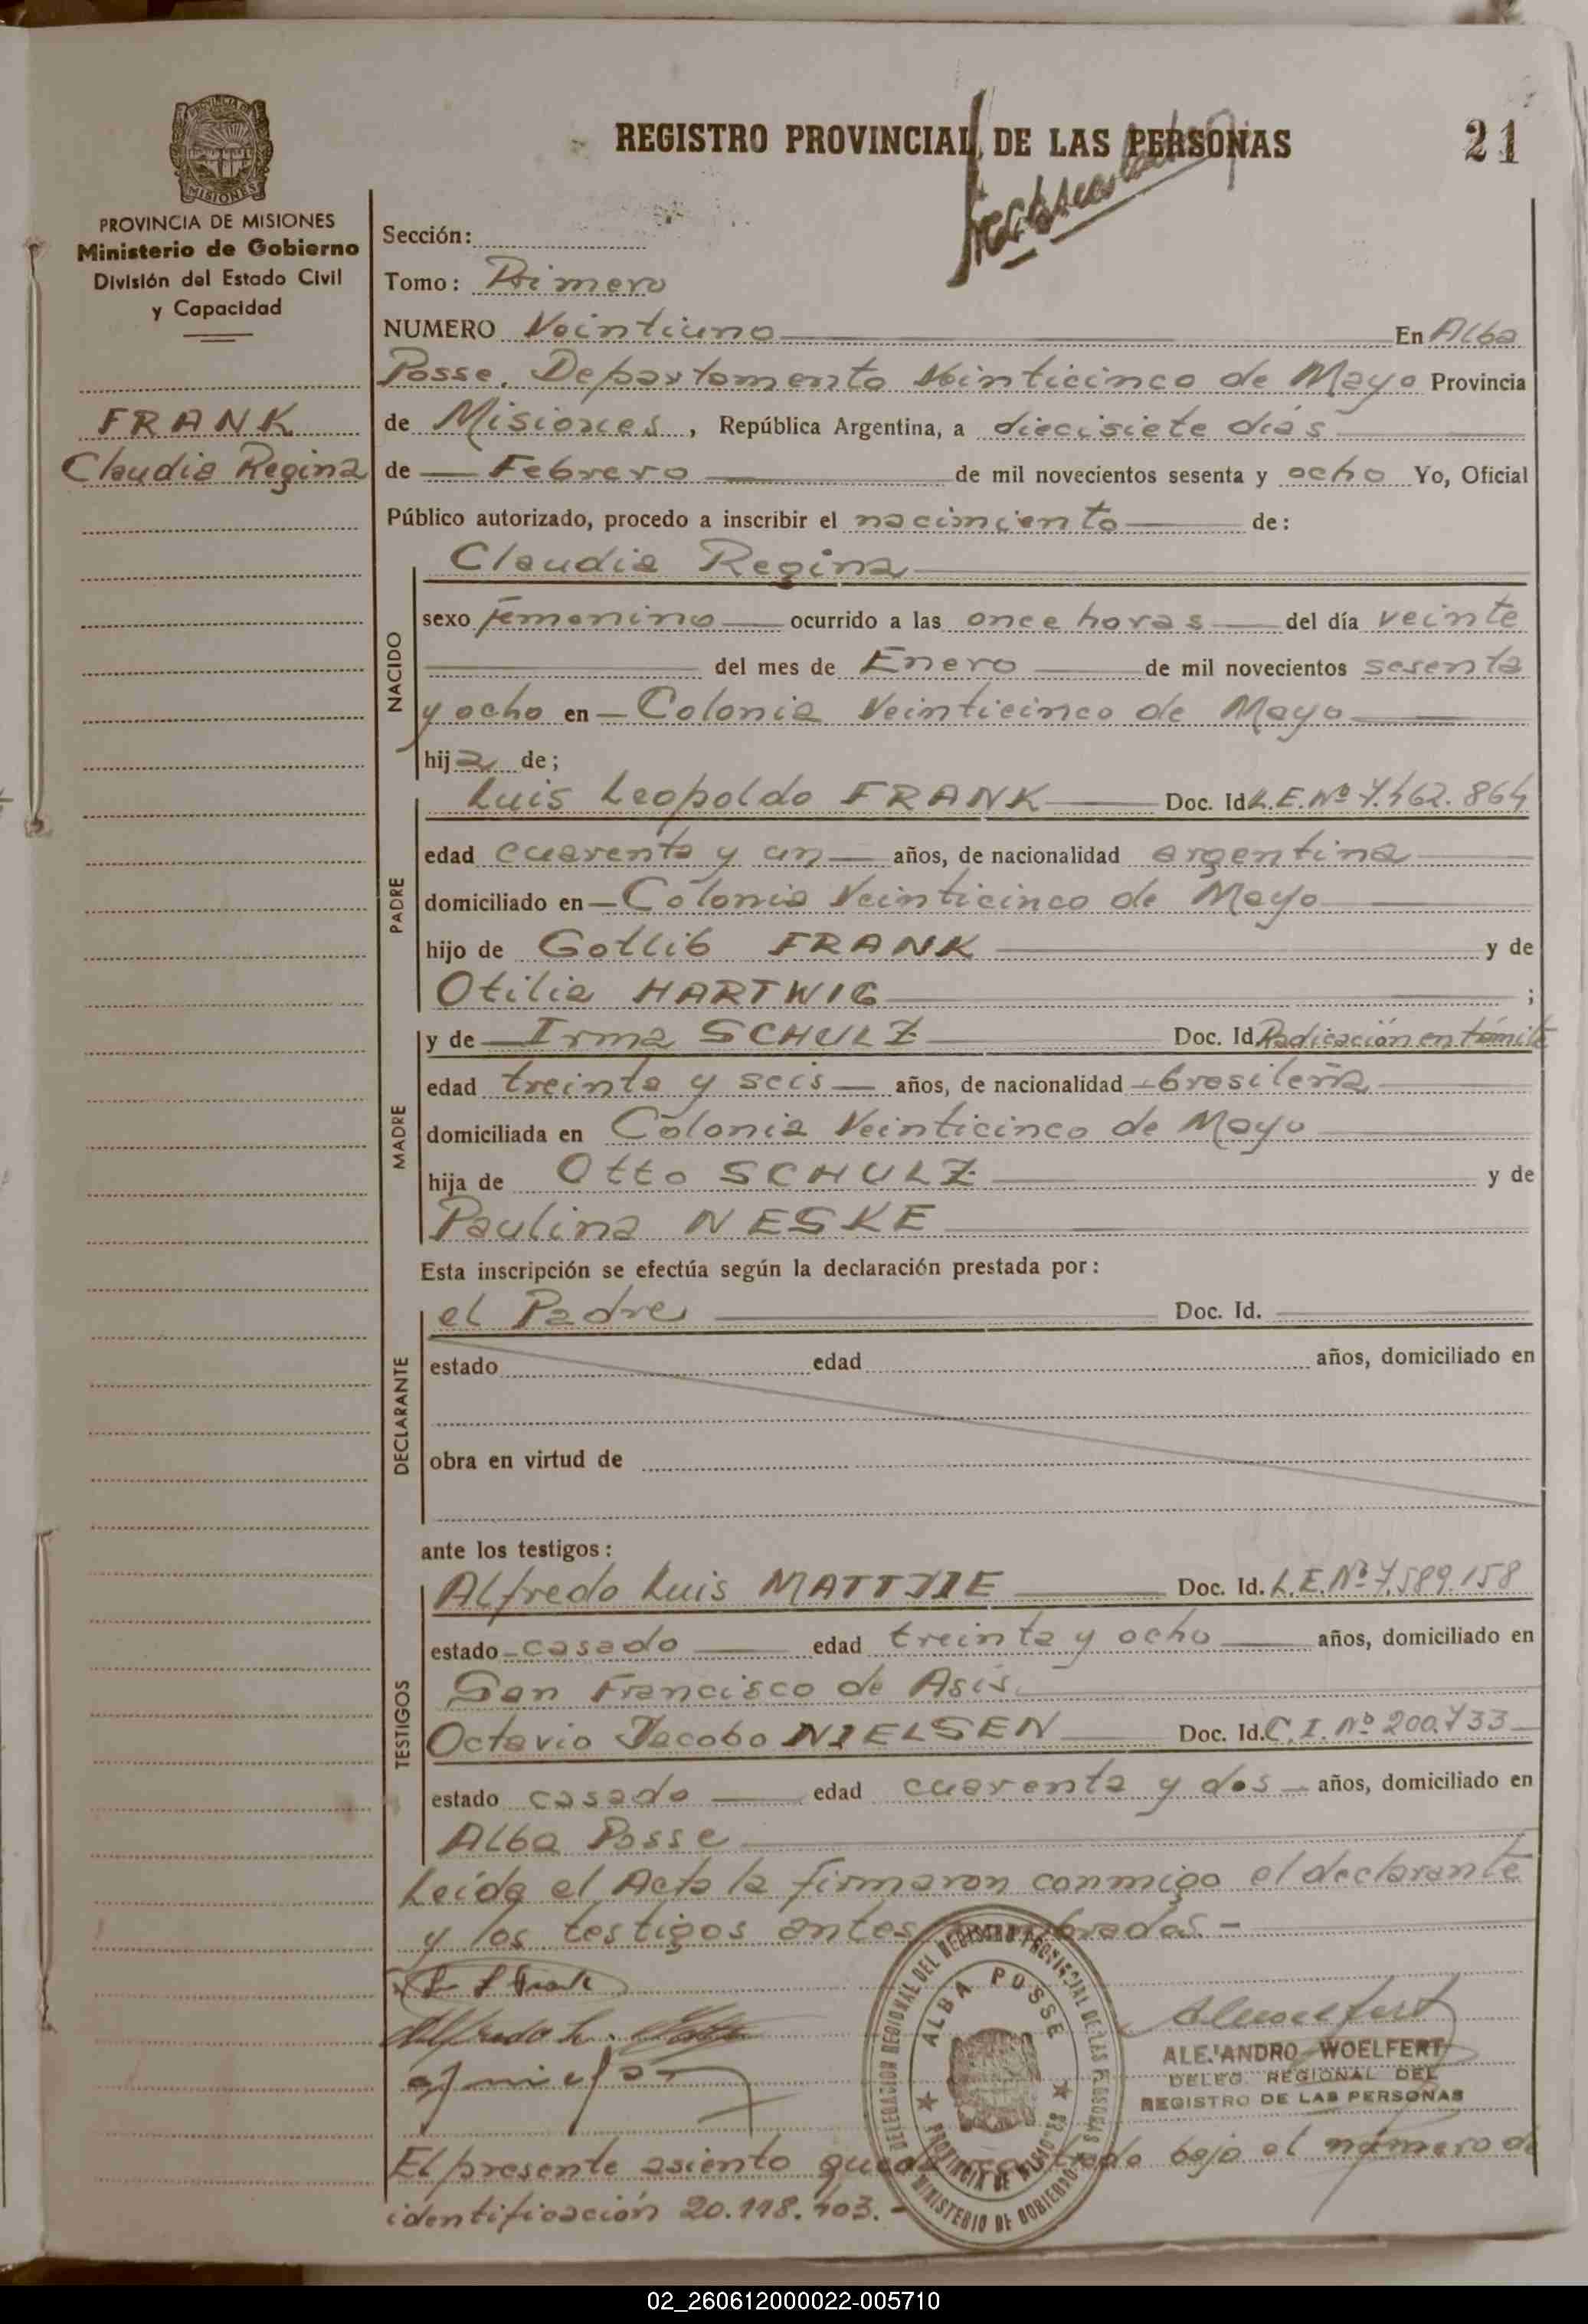 REGISTRO PROVINCIAL DE LAS PERSONAS
21
PROVINCIA DE MISIONES
Ministerio de Gobierno
División del Estado Civil
y Capacidad
FRANK
Claudia Regina
Sección:
Tomo: Primero
NUMERO Veintiuno En Alba
Posse, Departamento Veinticinco de Mayo Provincia
de Misiones, República Argentina, a diecisiete días
de Febrero de mil novecientos sesenta y ocho Yo, Oficial
Público autorizado, procedo a inscribir el nacimiento de:
NACIDO
Claudia Regina
sexo femenino ocurrido a las once horas del día veinte
del mes de Enero de mil novecientos sesenta
y ocho en Colonia Veinticinco de Mayo
hija de;
PADRE
Luis Leopoldo FRANK Doc. Id L.E. Nº 7.462.864
edad cuarenta y un años, de nacionalidad argentina
domiciliado en Colonia Veinticinco de Mayo
hijo de Gotlib FRANK y de
Otilia HARTWIG ;
MADRE
y de Irma SCHULZ Doc. Id Radicación en támite
edad treinta y seis años, de nacionalidad brasileña
domiciliada en Colonia Veinticinco de Mayo
hija de Otto SCHULZ y de
Paulina NESKE
Esta inscripción se efectúa según la declaración prestada por:
DECLARANTE
el Padre Doc. Id.
estado edad años, domiciliado en
obra en virtud de
ante los testigos:
TESTIGOS
Alfredo Luis MATTJIE Doc. Id. L.E. Nº 7.589.158
estado casado edad treinta y ocho años, domiciliado en
San Francisco de Asís.
Octavio Jacobo NIELSEN Doc. Id. C.I. Nº 200.733
estado casado edad cuarenta y dos años, domiciliado en
Alba Posse
Leída el Acta la firmaron conmigo el declarante
y los testigos antes nombrados.-
L L Frank
Alfredo L.
DELEGACION REGIONAL DEL REGISTRO PROVINCIAL DE LAS PERSONAS
ALBA POSSE
PROVINCIA DE MISIONES
MINISTERIO DE GOBIERNO
ALEJANDRO WOELFERT
DELEG. REGIONAL DEL
REGISTRO DE LAS PERSONAS
El presente asiento queda registrado bajo el número de
identificación 20.118.403.-
02_260612000022-005710